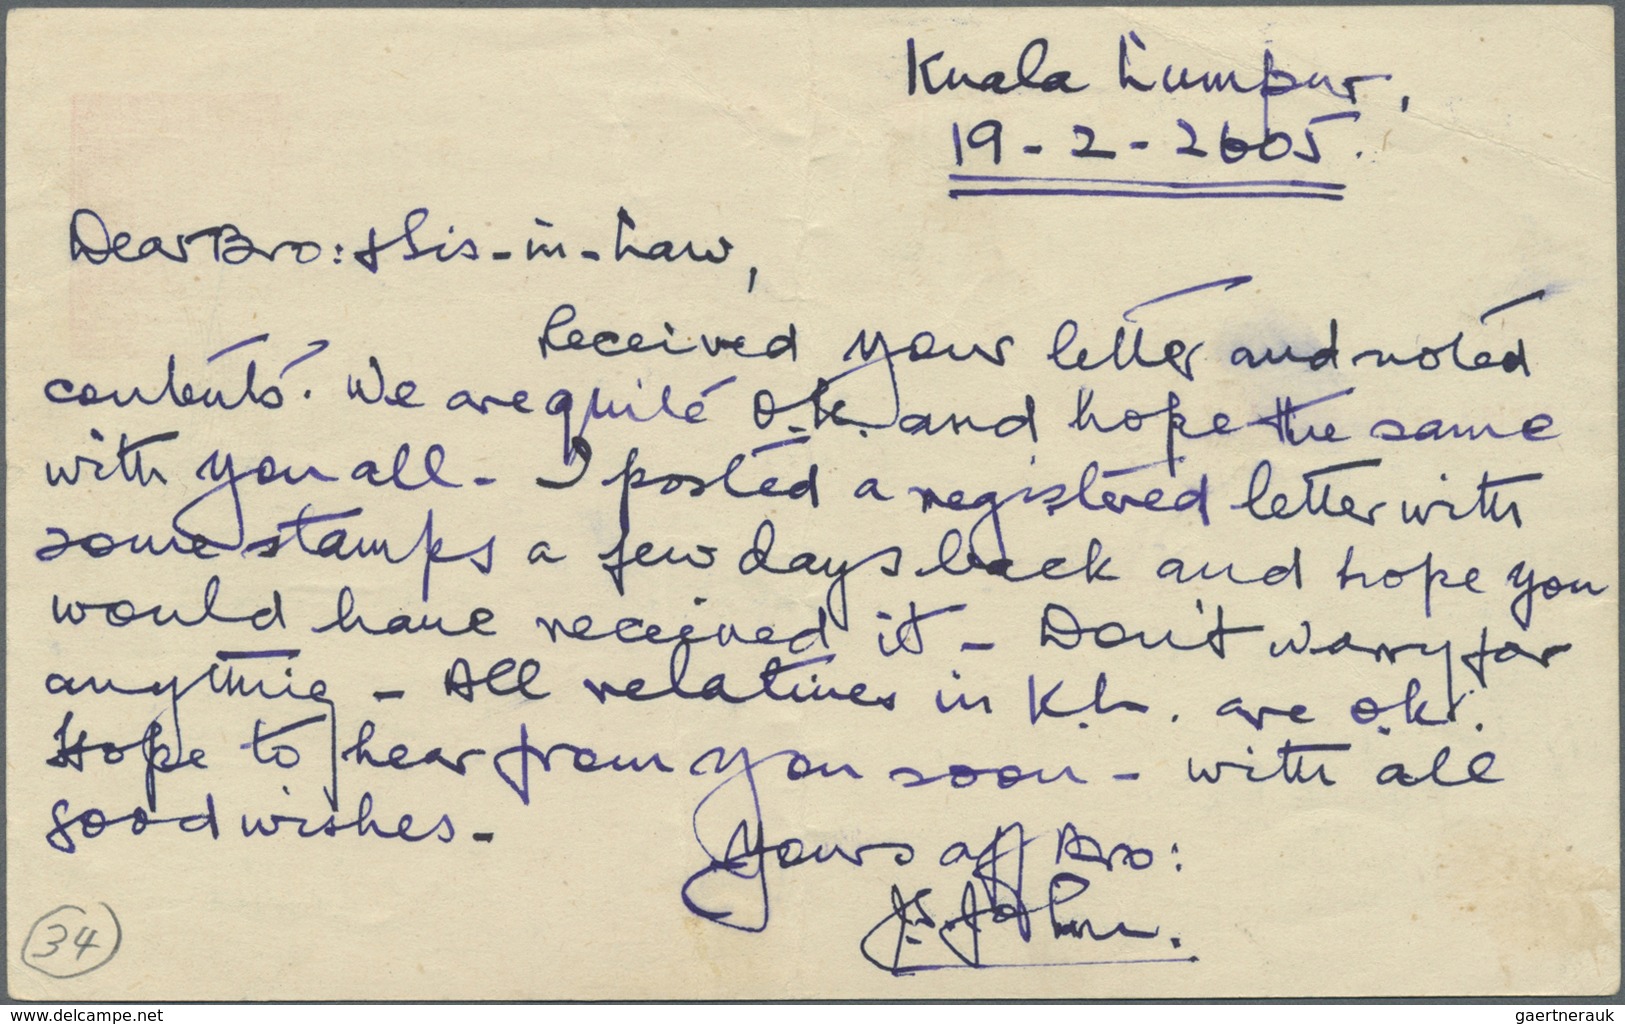 Kuala Lumpur,
19 - 2 - 2605.
Dear Bro: & Sis-in-Law,
Received your letter and noted
contents. We are quite O.K. and hope the same
with you all - I posted a registered letter with
some stamps a few days back and hope you
would have received it - Don't worry for
anything - All relatives in K.L. are O.K.
Hope to hear from you soon - with all
good wishes -
Yours aff Bro:
John.
34
www.delcampe.net
gaertnerauk